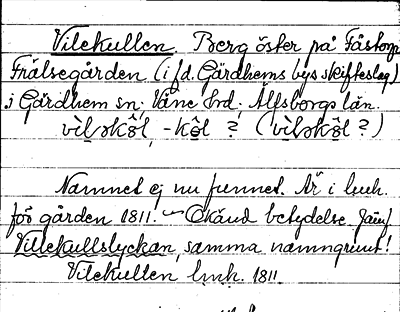 Vilekullen Berg öster på Fåstorp
Frälsegården (i f.d. Gärdhems bys skifteslag)
i Gärdhem sn; Väne hd; Älfsborgs län.
Namnet ej nu funnet. Är i lmh.
för gården 1811. – Okänd betydelse. Jämf
Villekullslyckan, samma namngrund!
Vilekullen lmh. 1811